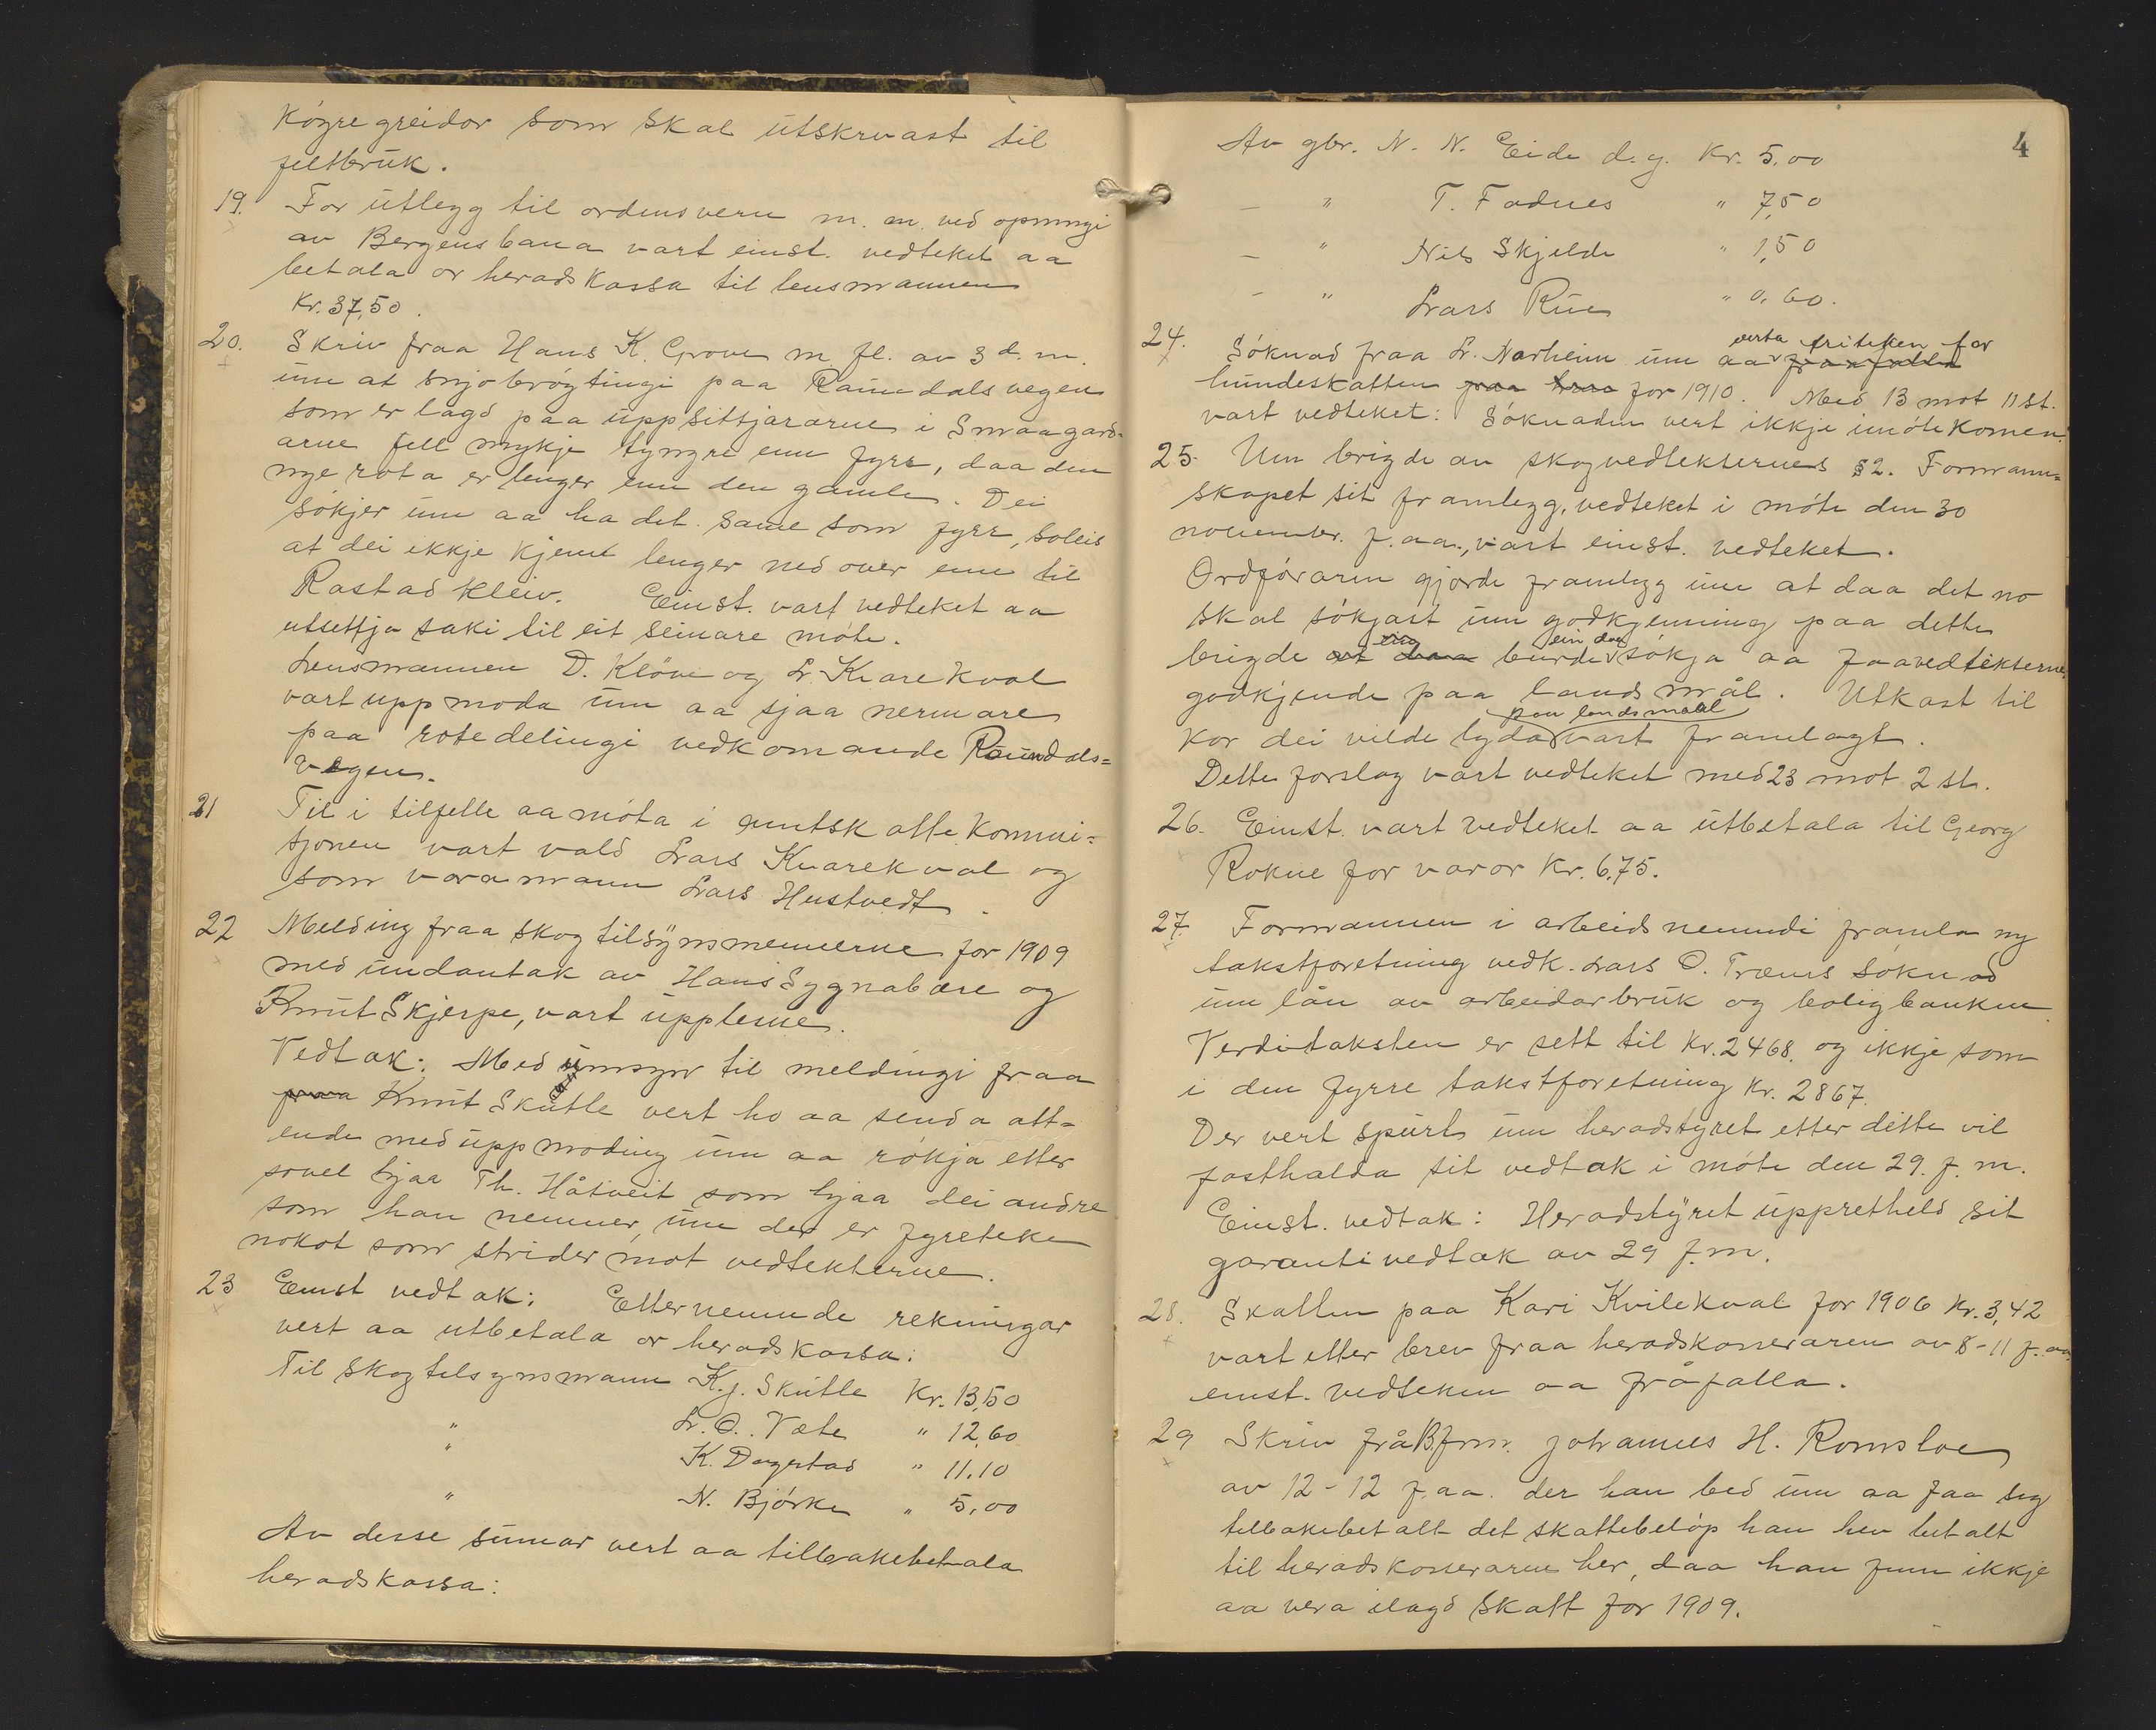 Kógre greidor som skal utskrivast til
feltbruk.
19. For utlegg til ordensvern m. m. ved opningi
av Bergensbana vart einst. vedteket aa
betala or heradskassa til lensmannen
Kr. 37,50.
20. Skriv fraa Hans K. Grove m. fl. av 3 d. m.
um at snjobróytingi paa Raundalsvegen
som er lagd paa uppsittjararne i Smaagard-
arne fell mykje tyngre enn fyrr, daa den
nye rota er lenger enn den gamle. Dei
sókjer um aa ha det same som fyrr, soleis
at dei ikkje kjem lenger ned over enn til
Rastadkleiv. Einst. vart vedteket aa
utsettja saki til eit seinare móte.
Lensmannen D. Klöve og L. Kvarekval
vart uppmoda um aa sjaa nermare
paa rotedelingi vedkomande Raundals=
vegen.
21 Til i tilfelle aa móta i amtskattekommi=
sjonen vart vald Lars Kvarekval og
som varamann Lars Hustvedt.
22 Melding fraa skogtilsynsmennerne for 1909
med undantak av Hans Sygnabære og
Knut Skjerpe, vart upplesne.
Vedtak: Med umsyn til meldingi fraa
fraa Knut Skutle vert ho aa senda att=
ende med uppmoding um aa rókja etter
sovel hjaa Th. Håtveit som hjaa dei andre
som han nemner, um der er fyreteke
nokot som strider mot vedtekterne.
23 Einst vedtak: Etternemnde rekningar
vert aa utbetala or heradskassa:
Til skogtilsynsmann K. J. Skutle Kr. 13,50
" L. O. Væte " 12,60
" K. Dagestad " 11,10
" N. Bjórke " 5,00
Av desse sumar vert aa tilbakebetala
heradskassa:
4
Av gbr. N. N. Eide d. y. Kr. 5,00
— " T. Fadnes " 7,50
— " Nils Skjelde " 1,50
— " Lars Rue " 0,60.
24. verta friteken for
Sóknad fraa L. Narheim um aa fraafalla
hundeskatten paa hans for 1910. Med 13 mot 11 st.
vart vedteket: Sóknaden vert ikkje imótekomen.
25. Um brigde av skogvedtekternes § 2. Formann=
skapet sit framlegg, vedteket i móte den 30
november f. aa., vart einst. vedteket.
Ordfóraren gjorde framlegg um at daa det no
skal sókjast um godkjenning paa dette
brigde at daa burde ein daa sókja aa faa vedtekterne
godkjende paa landsmål. Utkast til
paa landsmaal
kor dei vilde lyda vart framlagt.
Dette forslag vart vedteket med 23 mot 2 st.
26. Einst. vart vedteket aa utbetala til Georg
Rokne for varor Kr. 6,75.
27. Formannen i arbeidsnemndi framla ny
takstforetning vedk. Lars O. Træns sóknad
um lån av arbeidarbruk og boligbanken.
Verditaksten er sett til Kr. 2468. og ikkje som
i den fyrre takstforetning Kr. 2867.
Der vert spurt um heradstyret etter dette vil
fasthalda sit vedtak i móte den 29. f. m.
Einst. vedtak: Heradstyret upprettheld sit
garantivedtak av 29 f. m.
28. Skatten paa Kari Kvilekval for 1906 Kr. 3,42
vart etter brev fraa heradskasseraren av 8-11 f. aa.
einst. vedteken aa fråfalla.
29 Skriv frå Bfm. Johannes H. Romsloe
av 12-12 f. aa. der han bed um aa faa seg
tilbakebetalt det skattebelóp han hev betalt
til heradskasseraren her, daa han finn ikkje
aa vera ilagd skatt for 1909.